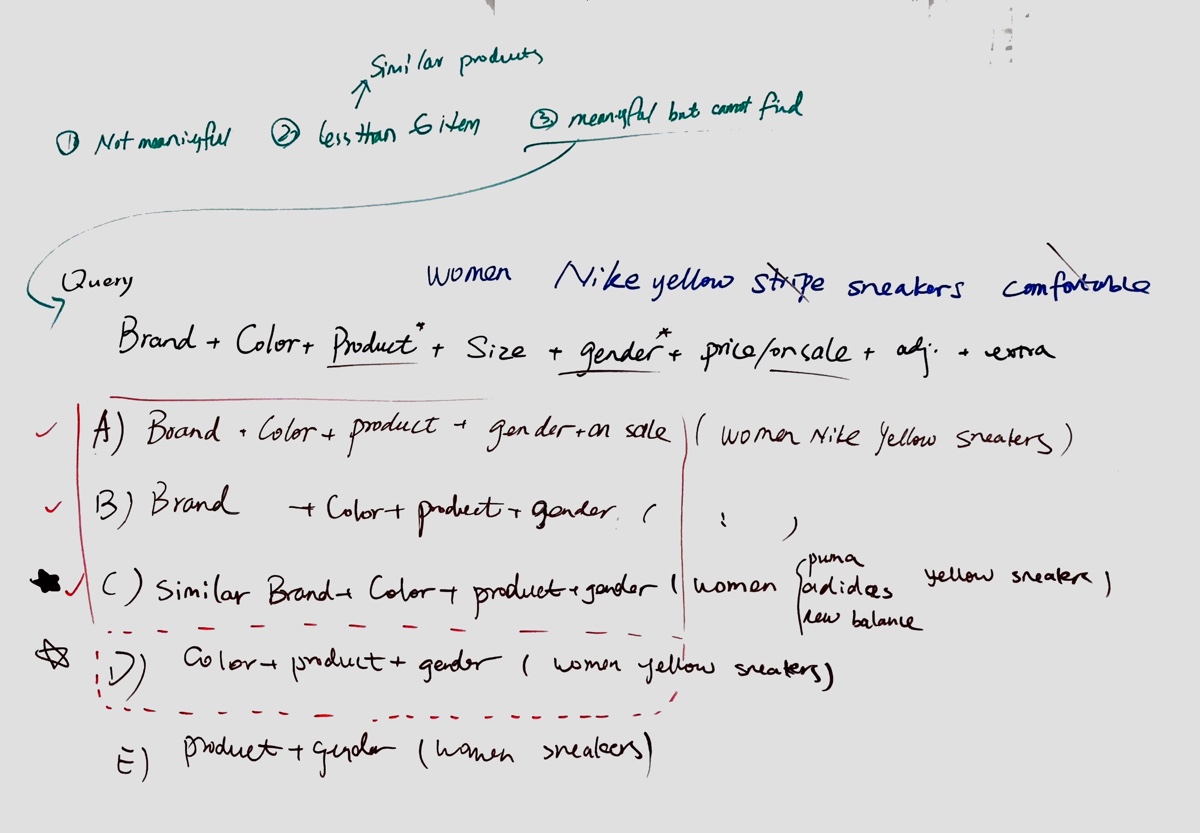 Similar products
① Not meaningful ② less than 6 item ③ meaningful but cannot find
Query
women Nike yellow stripe sneakers comfortable
Brand + Color + Product* + Size + gender* + price/on sale + adj. + extra
A) Brand + Color + product + gender + on sale (women Nike Yellow sneakers)
B) Brand + Color + product + gender. ( : )
C) Similar Brand + Color + product + gender (women { puma adidas new balance yellow sneakers)
D) Color + product + gender (women yellow sneakers)
E) product + gender (women sneakers)